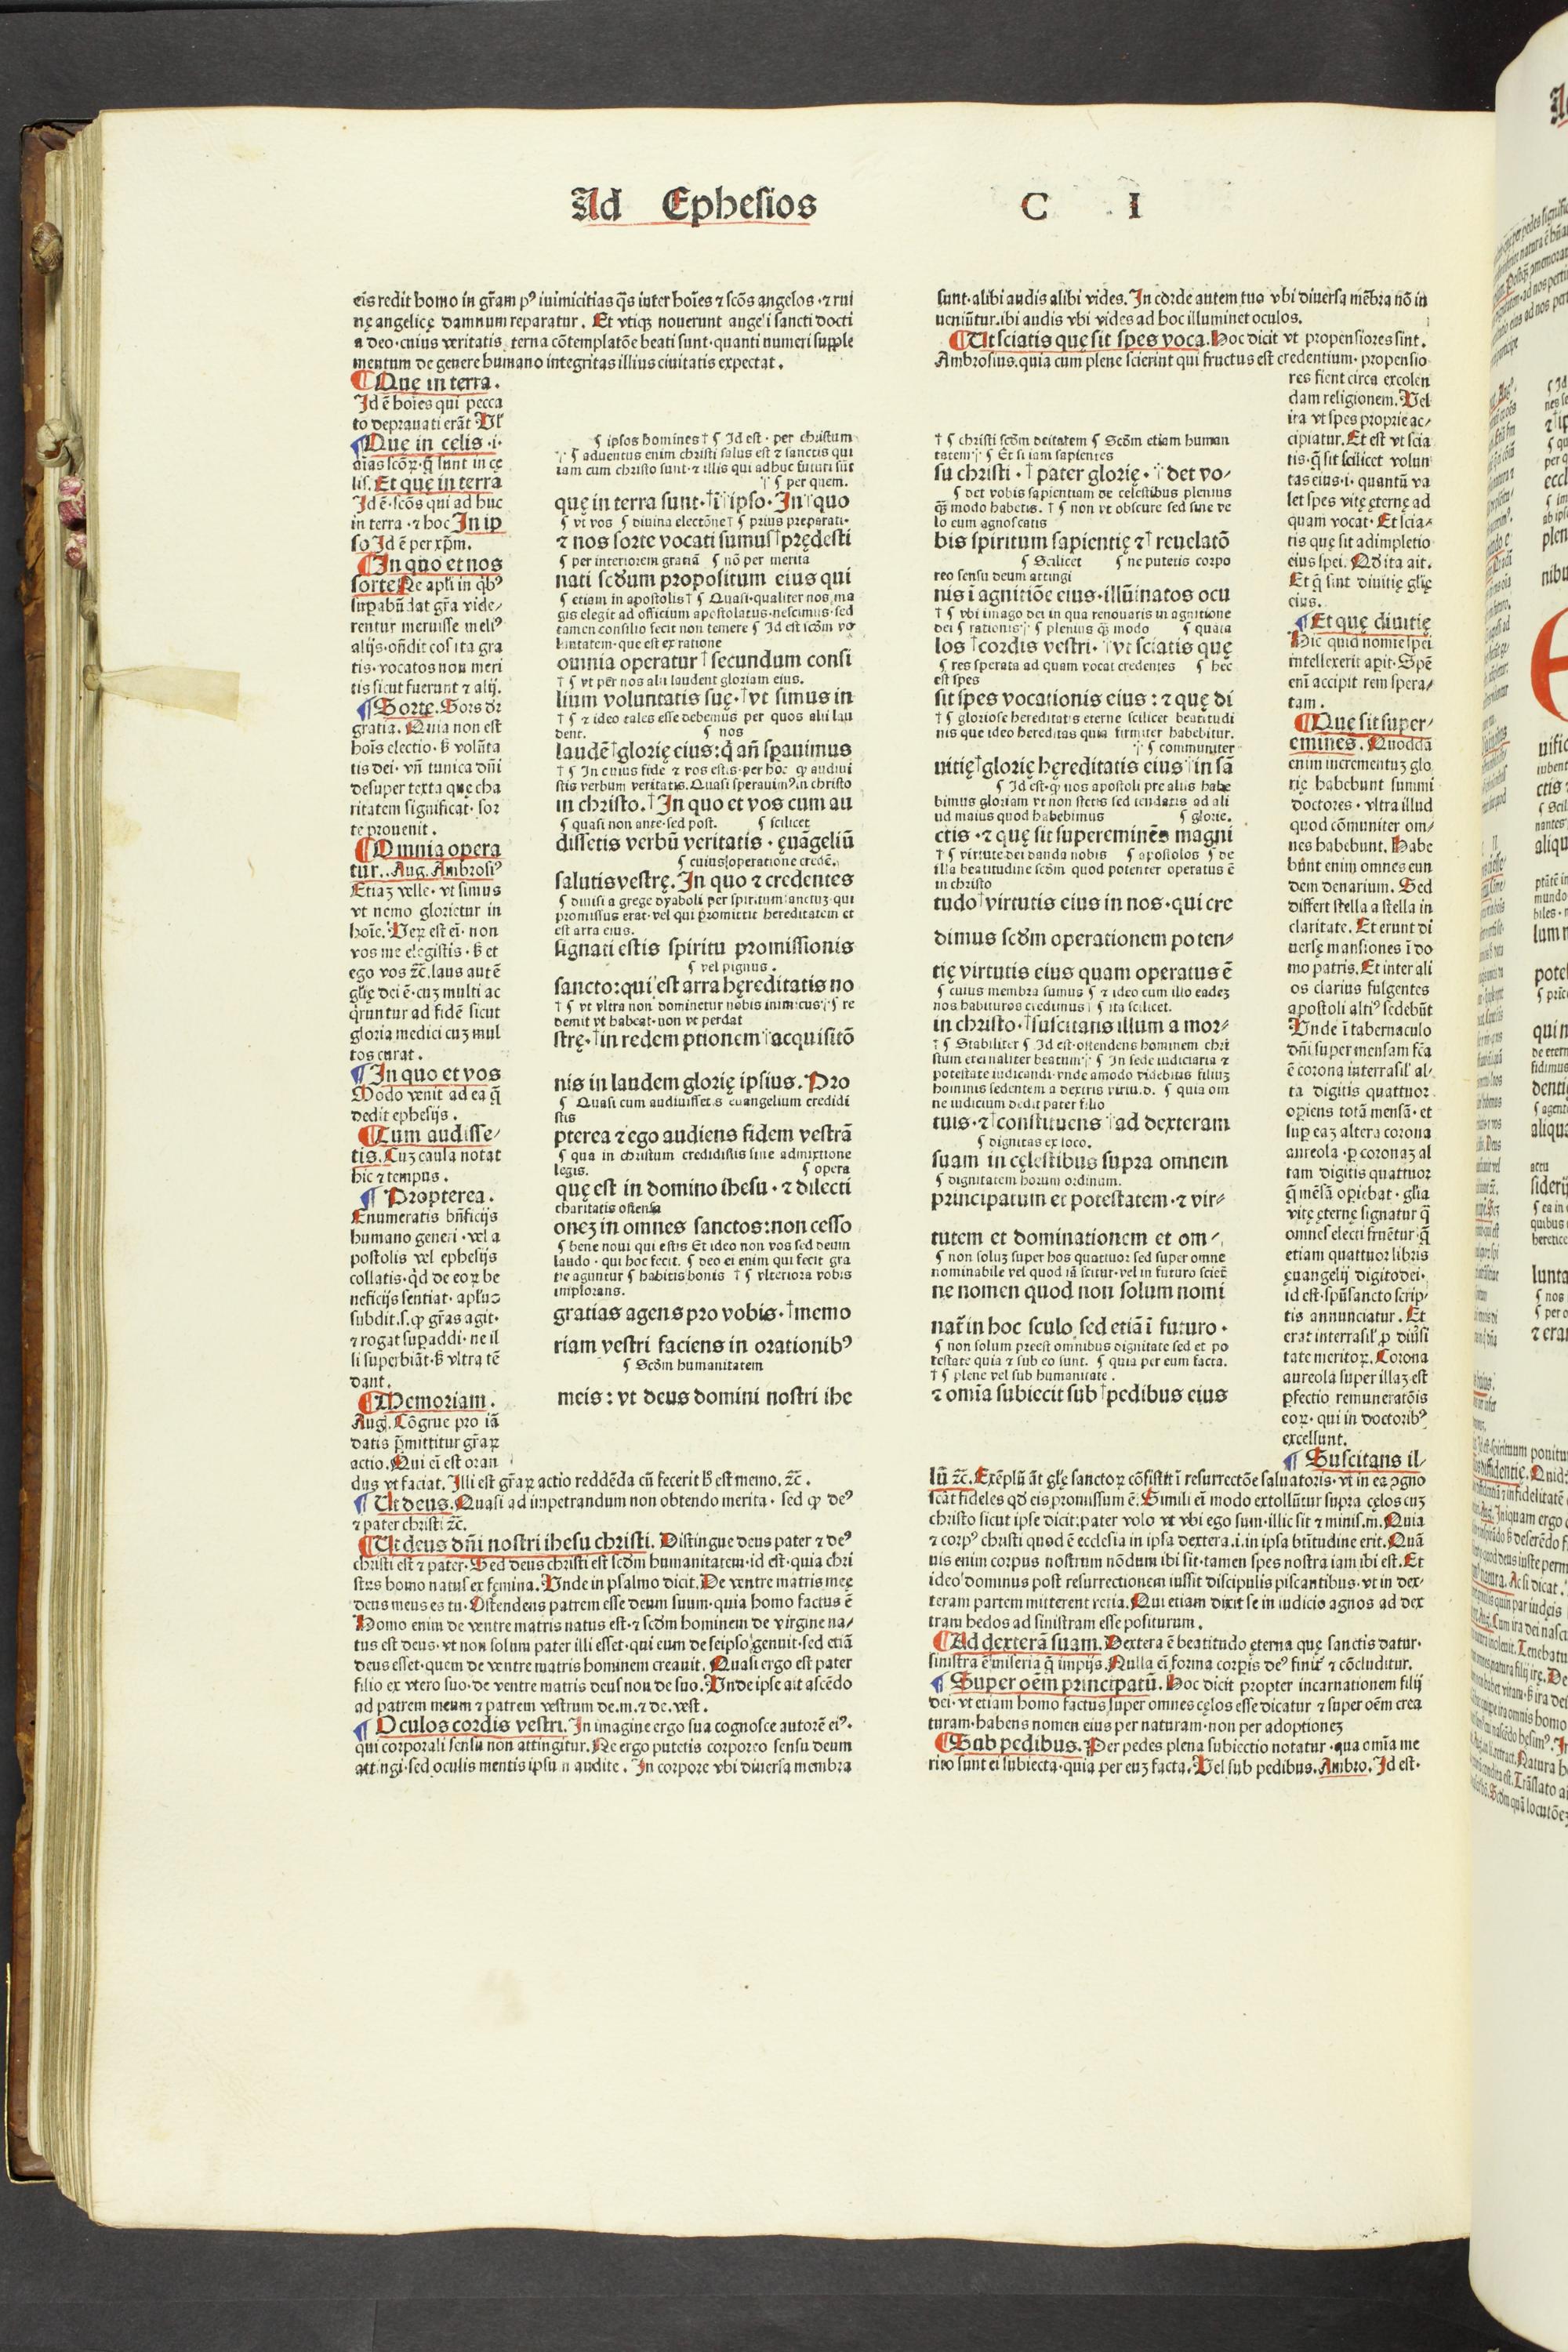 Ad Ephesios
C I
eis redit homo in gr̃am pꝰ inimicitias q̃s inter hoĩes ⁊ scõs angelos·⁊ rui
nę angelicę damnum reparatur. Et vtiqꝫ nouerunt angeli sancti docti
a deo·cuius veritatis terna cõtemplatõe beati sunt·quanti numeri supple
mentum de genere humano integritas illius ciuitatis expectat.
¶Que in terra.
Id ẽ hoĩes qui pecca
to deprauati erãt Ul
¶Que in celis·i·
aĩas scõꝝ·q̃ sunt in cę
lis. Et que in terra
Id ẽ·scõs qui ad huc
in terra·⁊ hoc In ip
so Id ẽ per xp̃m.
¶In quo et nos
sorte Ne apłi in qͥbꝰ
suꝑabũdat gr̃a vide⸗
rentur meruisse meliꝰ
alijs·oñdit eos ita gra
tis·vocatos non meri
tis sicut fuerunt ⁊ alij.
¶Sorte. Sors dr̃
gratia. Quia non est
hoĩs electio·ꝫ volũta
tis dei·vñ tunica dñi
desuper texta que cha
ritatem significat·sor
te prouenit.
¶Omnia opera
tur. Aug. Ambrosiꝰ
Etiaꝫ velle·vt simus
vt nemo glorietur in
hoĩe. Ueꝝ est eĩ·non
vos me elegistis·ꝫ et
ego vos ⁊c̃. laus autẽ
głię dei ẽ·cuꝫ multi ac
q̃runtur ad fidẽ sicut
gloria medici cuꝫ mul
tos curat.
¶In quo et vos
Modo venit ad ea q̃
dedit ephesijs.
¶Cum audisse⸗
tis. Cuꝫ causa notat
hic ⁊ tempus.
¶Propterea.
Enumeratis bñficijs
humano generi·vel a
postolis vel ephesijs
collatis·qͥd de eoꝝ be
neficijs sentiat·apłus
subdit.s.ꝙ gr̃as agit·
⁊ rogat suꝑaddi·ne il
li superbiãt·ꝫ vltra tẽ
dant.
¶Memoriam.
Aug. Cõgrue pro iã
datis p̃mittitur gr̃aꝝ
actio. Qui eĩ est oran
dus vt faciat. Illi est gr̃aꝝ actio reddẽda cũ fecerit hͦ est memo. ⁊c̃.
¶Ut deus. Quasi ad impetrandum non obtendo merita·sed ꝙ deꝰ
⁊ pater christi ⁊c̃.
¶Ut deus dñi nostri ihesu christi. Distingue deus pater ⁊ deꝰ
christi est ⁊ pater·Sed deus christi est scdm humanitatem·id est·quia chri
stus homo natus ex fęmina. Unde in psalmo dicit. De ventre matris meę
deus meus es tu. Ostendens patrem esse deum suum·quia homo factus ẽ
Homo enim de ventre matris natus est·⁊ scdm hominem de virgine na⸗
tus est deus·vt non solum pater illi esset·qui eum de seipso genuit·sed etiã
deus esset·quem de ventre matris hominem creauit. Quasi ergo est pater
filio ex vtero suo·de ventre matris deus non de suo. Unde ipse ait ascẽdo
ad patrem meum ⁊ patrem vestrum de.m.⁊ de.vest.
¶Oculos cordis vestri. In imagine ergo sua cognosce autorẽ eiꝰ·
qui corporali sensu non attingitur. Ne ergo putetis corporeo sensu deum
attingi·sed oculis mentis ipsum audite. In corpore vbi diuersa membra
¶ ipsos homines† ¶ Id est·per christum
¶ aduentus enim christi salus est ⁊ sanctis qui
iam cum christo sunt·⁊ illis qui adhuc futuri sũt
¶ per quem.
que in terra sunt·†ĩ †ipso·In †quo
¶ vt vos ¶ diuina electõne† ¶ prius preparati·
⁊ nos sorte vocati sumus †prędesti
¶ per interiorem gratiã ¶ nõ per merita
nati scdum propositum eius qui
¶ etiam in apostolis† ¶ Quasi·qualiter nos ma
gis elegit ad officium apostolatus·nescimus·sed
tamen consilio fecit non temere ¶ Id est scdm vo
luntatem·que est ex ratione
omnia operatur †secundum consi
† ¶ vt per nos alii laudent gloriam eius.
lium voluntatis suę·†vt simus in
† ¶ ⁊ ideo tales esse debemus per quos alii lau
dent. ¶ nos
laudẽ †glorię eius: q̃ añ sꝑauimus
† ¶ In cuius fide ⁊ vos estis·per hoc ꝙ audiui
stis verbum veritatis. Quasi sperauimꝰ in christo
in christo.†In quo et vos cum au
¶ quasi non ante·sed post. ¶ scilicet
dissetis verbũ veritatis·ęuãgeliũ
¶ cuius operatione credẽ.
salutis vestrę. In quo ⁊ credentes
¶ diuisi a grege dyaboli per spiritum sanctuꝫ·qui
promissus erat·vel qui promittit hereditatem et
est arra eius.
signati estis spiritu promissionis
¶ vel pignus.
sancto: qui est arra hęreditatis no
† ¶ vt vltra non dominetur nobis inimicus ¶ re
demit vt habeat·non vt perdat
strę·†in redemptionem †acquisitõ
nis in laudem glorię ipsius. Pro
¶ Quasi cum audiuissetis euangelium credidi
stis
pterea ⁊ ego audiens fidem vestrã
¶ qua in christum credidistis sine admixtione
legis. ¶ opera
quę est in domino ihesu·⁊ dilecti
charitatis ostensa
oneꝫ in omnes sanctos: non cesso
¶ bene noui qui estis Et ideo non vos sed deum
laudo·qui hoc fecit. ¶ deo ei enim qui fecit gra
tie aguntur ¶ habitis bonis † ¶ vlteriora vobis
implorans.
gratias agens pro vobis·†memo
riam vestri faciens in orationibꝰ
¶ Scdm humanitatem
meis: vt deus domini nostri ihe
sunt·alibi audis alibi vides. In corde autem tuo vbi diuersa mẽbra nõ in
ueniũtur·ibi audis vbi vides ad hoc illuminet oculos.
¶Ut sciatis quę sit spes voca. Hoc dicit vt propensiores sint.
Ambrosius.quia cum plene scierint qui fructus est credentium·propensio
† ¶ christi scdm deitatem ¶ Scdm etiam human
tatem ¶ Et si iam sapientes
su christi·†pater glorię·†det vo⸗
¶ det vobis sapientiam de celestibus plenius
q̃ꝫ modo habetis. † ¶ non vt obscure sed sine ve
lo eum agnoscatis
bis spiritum sapientię ⁊ †reuelatõ
¶ Scilicet ¶ ne putetis corpo
reo sensu deum attingi
nis ĩ agnitiõe eius·illũinatos ocu
† ¶ vbi imago dei in qua renouaris in agnitione
dei ¶ rationis ¶ plenius q̃ꝫ modo ¶ quata
los †cordis vestri·†vt sciatis quę
¶ res sperata ad quam vocat credentes ¶ hec
est spes
sit spes vocationis eius: ⁊ quę di
† ¶ gloriose hereditatis eterne scilicet beatitudi
nis que ideo hereditas quia firmiter habebitur.
¶ communiter
uitię †glorię hęreditatis eius †in sã
¶ Id est·ꝙ nos apostoli pre aliis habe
bimus gloriam vt non stetis sed tendatis ad ali
ud maius quod habebimus ¶ glorie.
ctis·⁊ quę sit supereminẽs magni
† ¶ virtute dei danda nobis ¶ apostolos ¶ de
illa beatitudine scdm quod potenter operatus ẽ
in christo
tudo †virtutis eius in nos·qui cre
dimus scdm operationem poten⸗
tię virtutis eius quam operatus ẽ
¶ cuius membra sumus ¶ ⁊ ideo cum illo eadeꝫ
nos habituros credimus ¶ ita scilicet.
in christo·†suscitans illum a mor⸗
† ¶ Stabiliter ¶ Id est·ostendens hominem chri
stum eternaliter beatum ¶ In sede iudiciaria ⁊
potestate iudicandi·vnde amodo videbitis filiuꝫ
hominis sedentem a dextris virtu.d. ¶ quia om
ne iudicium dedit pater filio
tuis·⁊ †constituens †ad dexteram
¶ dignitas ex loco.
suam in cęlestibus supra omnem
¶ dignitatem horum ordinum.
principatum et potestatem·⁊ vir⸗
tutem et dominationem et om⸗
¶ non soluꝫ super hos quattuor sed super omne
nominabile vel quod iã scitur·vel in futuro scieť
ne nomen quod non solum nomi
nať in hoc sculo sed etiã ĩ futuro·
¶ non solum preest omnibus dignitate sed et po
testate quia ⁊ sub eo sunt. ¶ quia per eum facta.
† ¶ plene vel sub humanitate.
⁊ omĩa subiecit sub †pedibus eius
res fient circa excolen
dam religionem. Uel
ita vt spes proprie ac⸗
cipiatur. Et est vt scia
tis·q̃ sit scilicet volun
tas eius·i·quantũ va
let spes vitę ęternę ad
quam vocat·Et scia⸗
tis que sit adimpletio
eius spei. Qd ita ait.
Et q̃ sint diuitię głię
eius.
¶Et quę diuitię
Hic quid nomĩe spei
intellexerit aꝑit·Spẽ
enĩ accipit rem spera⸗
tam.
¶Que sit super⸗
emines. Quoddã
enim incrementuꝫ glo
rię habebunt summi
doctores·vltra illud
quod cõmuniter om⸗
nes habebunt. Habe
bũnt enim omnes eun
dem denarium. Sed
differt stella a stella in
claritate. Et erunt di
uersę mansiones ĩ do
mo patris. Et inter ali
os clarius fulgentes
apostoli altiꝰ sedebũt
Unde ĩ tabernaculo
dñi super mensam fc̃a
ẽ corona interrasił al⸗
ta digitis quattuor
opiens totã mensã·et
suꝑ eaꝫ altera corona
aureola·ꝑ coronaꝫ al
tam digitis quattuor
q̃ mẽsã oꝑiebat·głia
vitę ęternę signatur q̃
omnes electi fruẽtur·q̃
etiam quattuor libris
ęuangelij digito dei·
id est·spũsancto scrip⸗
tis annunciatur. Et
erat interrasił ꝓ diũsi
tate meritoꝝ. Corona
aureola super illaꝫ est
ꝑfectio remuneratõis
eoꝝ·qui in doctoribꝰ
excellunt.
¶Suscitans il⸗
lũ ⁊c̃. Exẽplũ ãt głę sanctoꝝ cõsistit ĩ resurrectõe saluatoris·vt in ea ꝯgno
scãt fideles qd eis promissum ẽ. Simili eĩ modo extollũtur supra cęlos cuꝫ
christo sicut ipse dicit: pater volo vt vbi ego sum·illic sit ⁊ minis.m̃. Quia
⁊ corpꝰ christi quod ẽ ecclesia in ipsa dextera.i.in ipsa btĩtudine erit. Quã
uis enim corpus nostrum nõdum ibi sit·tamen spes nostra iam ibi est. Et
ideo dominus post resurrectionem iussit discipulis piscantibus·vt in dex⸗
teram partem mitterent retia. Qui etiam dixit se in iudicio agnos ad dex
tram hedos ad sinistram esse positurum.
¶Ad dexterã suam. Dextera ẽ beatitudo ęterna quę sanctis datur·
sinistra ẽ miseria q̃ impijs. Nulla eĩ forma corꝑis deꝰ finiť ⁊ cõcluditur.
¶Super oẽm principatũ. Hoc dicit propter incarnationem filij
dei·vt etiam homo factus super omnes cęlos esse dicatur ⁊ super oẽm crea
turam·habens nomen eius per naturam·non per adoptioneꝫ
¶Sub pedibus. Per pedes plena subiectio notatur·qua omĩa me
rito sunt ei subiecta·quia per euꝫ facta. Uel sub pedibus. Ambro. Id est·